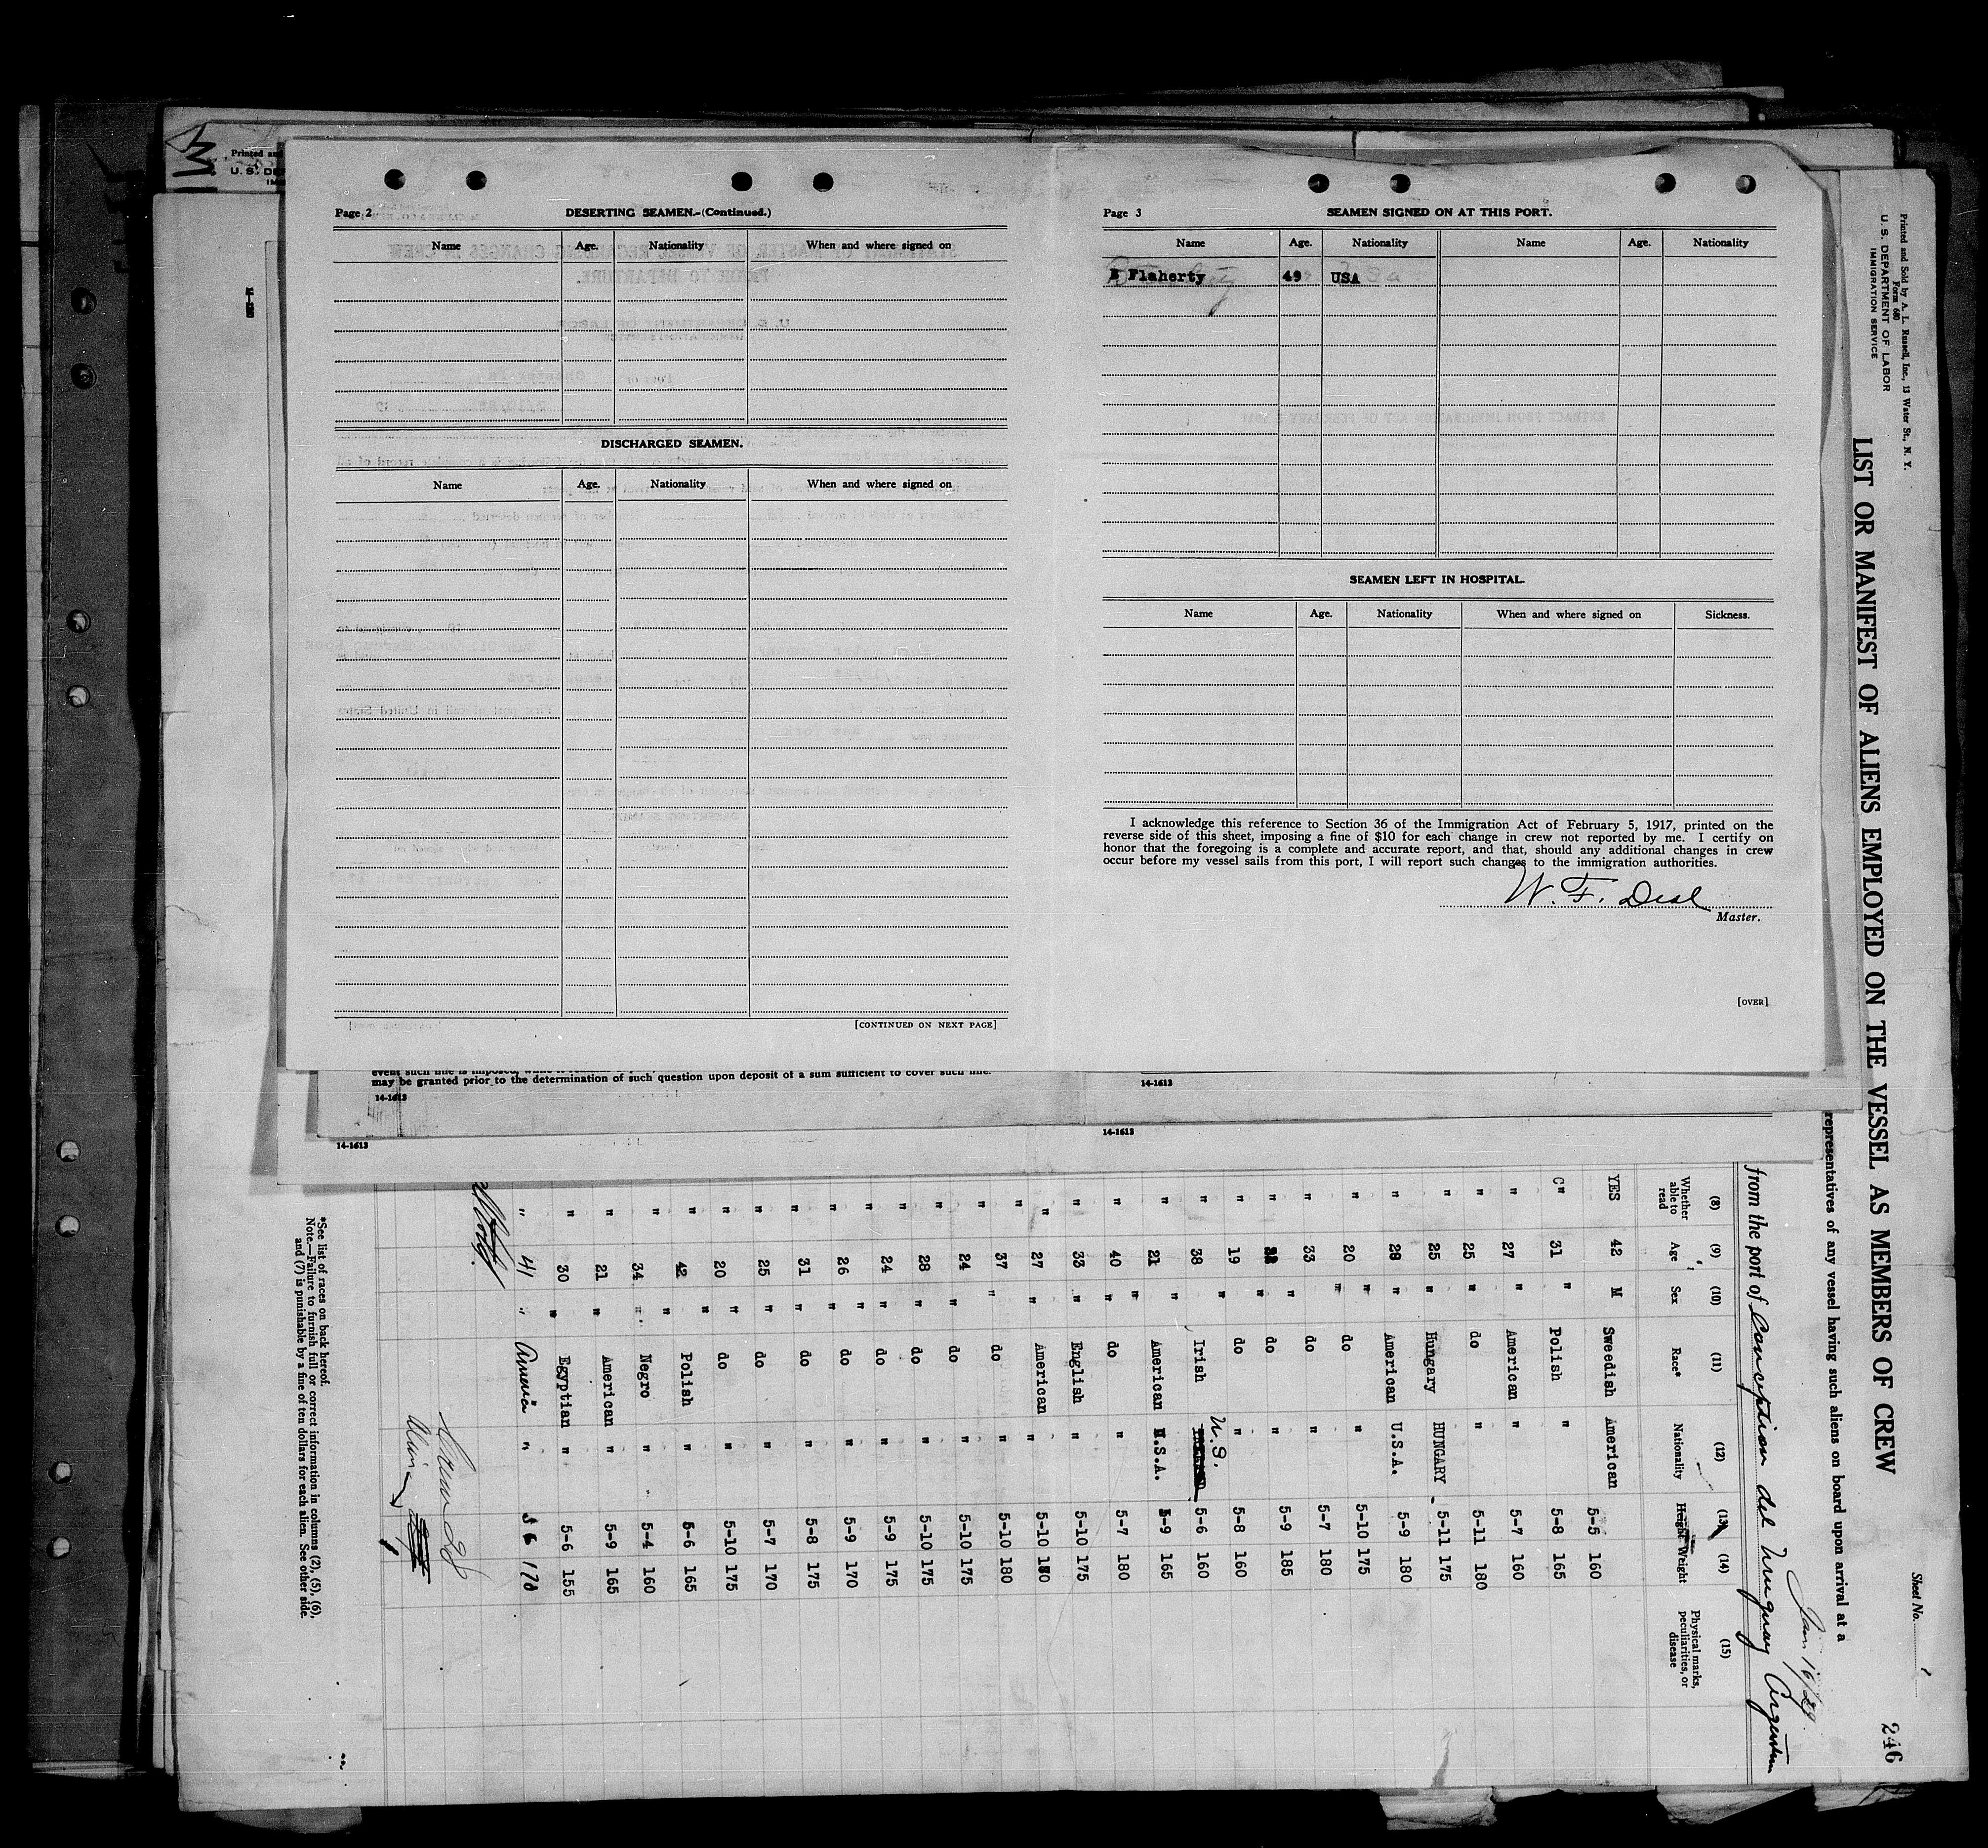 Printed and
U. S. DE
IM
Page 2
DESERTING SEAMEN.-(Continued.)
Name Age. Nationality When and where signed on
DISCHARGED SEAMEN.
Name Age. Nationality When and where signed on
[CONTINUED ON NEXT PAGE]
Page 3
SEAMEN SIGNED ON AT THIS PORT.
Name Age. Nationality Name Age. Nationality
Flaherty 49 USA
SEAMEN LEFT IN HOSPITAL.
Name Age. Nationality When and where signed on Sickness.
I acknowledge this reference to Section 36 of the Immigration Act of February 5, 1917, printed on the
reverse side of this sheet, imposing a fine of $10 for each change in crew not reported by me. I certify on
honor that the foregoing is a complete and accurate report, and that, should any additional changes in crew
occur before my vessel sails from this port, I will report such changes to the immigration authorities.
W. F. Deal
Master.
[OVER]
may be granted prior to the determination of such question upon deposit of a sum sufficient to cover such fine.
14-1613
14-1613
14-1613
14-1613
Printed and Sold by A. L. Russell, Inc., 15 Water St., N. Y.
Form 680
U. S. DEPARTMENT OF LABOR
IMMIGRATION SERVICE
Sheet No.
246
LIST OR MANIFEST OF ALIENS EMPLOYED ON THE VESSEL AS MEMBERS OF CREW
representatives of any vessel having such aliens on board upon arrival at a
Jan 16/29
from the port of Conception del Uruguay Argentine
(8) (9) (10) (11) (12) (13) (14) (15)
Whether able to read Age Sex Race* Nationality Height Weight Physical marks, peculiarities, or disease
YES 42 M Swedish American 5-5 160
C" 31 " Polish " 5-8 165
" 27 " American " 5-7 160
" 25 " do " 5-11 180
" 25 " Hungary HUNGARY 5-11 175
" 28 " American U.S.A. 5-9 180
" 20 " do " 5-10 175
" 33 " do " 5-7 180
" " do 5-9 185
" 19 " do " 5-8 160
" 38 " Irish U.S. 5-6 160
" 21 " American U.S.A. 5-9 165
" 40 " do " 5-7 180
" 33 " English " 5-10 175
" 27 " American " 5-10 180
" 37 " do 5-10 180
" 24 " do " 5-10 175
" 28 " do " 5-10 175
" 24 " do " 5-9 175
" 26 " do " 5-9 170
" 31 " do " 5-8 175
" 25 " do " 5-7 170
" 20 " do " 5-10 175
" 42 " Polish " 5-6 165
" 34 " Negro " 5-4 160
" 21 " American " 5-9 165
" 30 " Egyptian " 5-6 155
" 41 " America " 5 6 170
Crew 28
*See list of races on back hereof.
Note.—Failure to furnish full or correct information in columns (2), (5), (6),
and (7) is punishable by a fine of ten dollars for each alien. See other side.